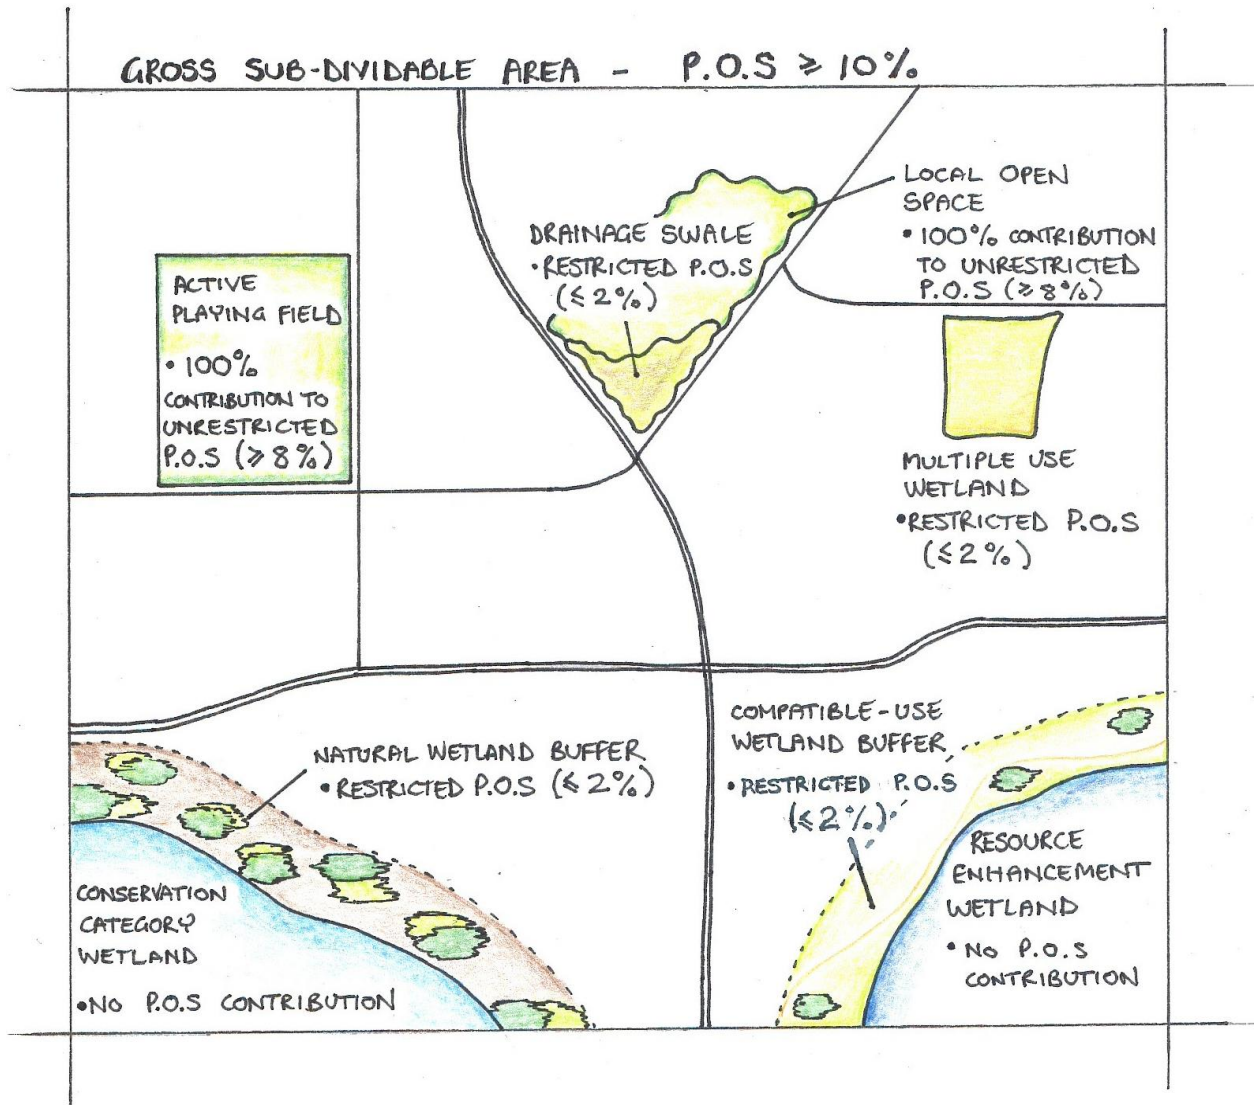 GROSS SUB-DIVIDABLE AREA - P.O.S ≥ 10%
LOCAL OPEN
SPACE
• 100% CONTRIBUTION
TO UNRESTRICTED
P.O.S (≥8%)
DRAINAGE SWALE
• RESTRICTED P.O.S
(≤2%)
ACTIVE
PLAYING FIELD
• 100%
CONTRIBUTION TO
UNRESTRICTED
P.O.S (≥8%)
MULTIPLE USE
WETLAND
• RESTRICTED P.O.S
(≤2%)
NATURAL WETLAND BUFFER
• RESTRICTED P.O.S (≤2%)
COMPATIBLE-USE
WETLAND BUFFER
• RESTRICTED P.O.S
(≤2%)
CONSERVATION
CATEGORY
WETLAND
• NO P.O.S CONTRIBUTION
RESOURCE
ENHANCEMENT
WETLAND
• NO P.O.S
CONTRIBUTION